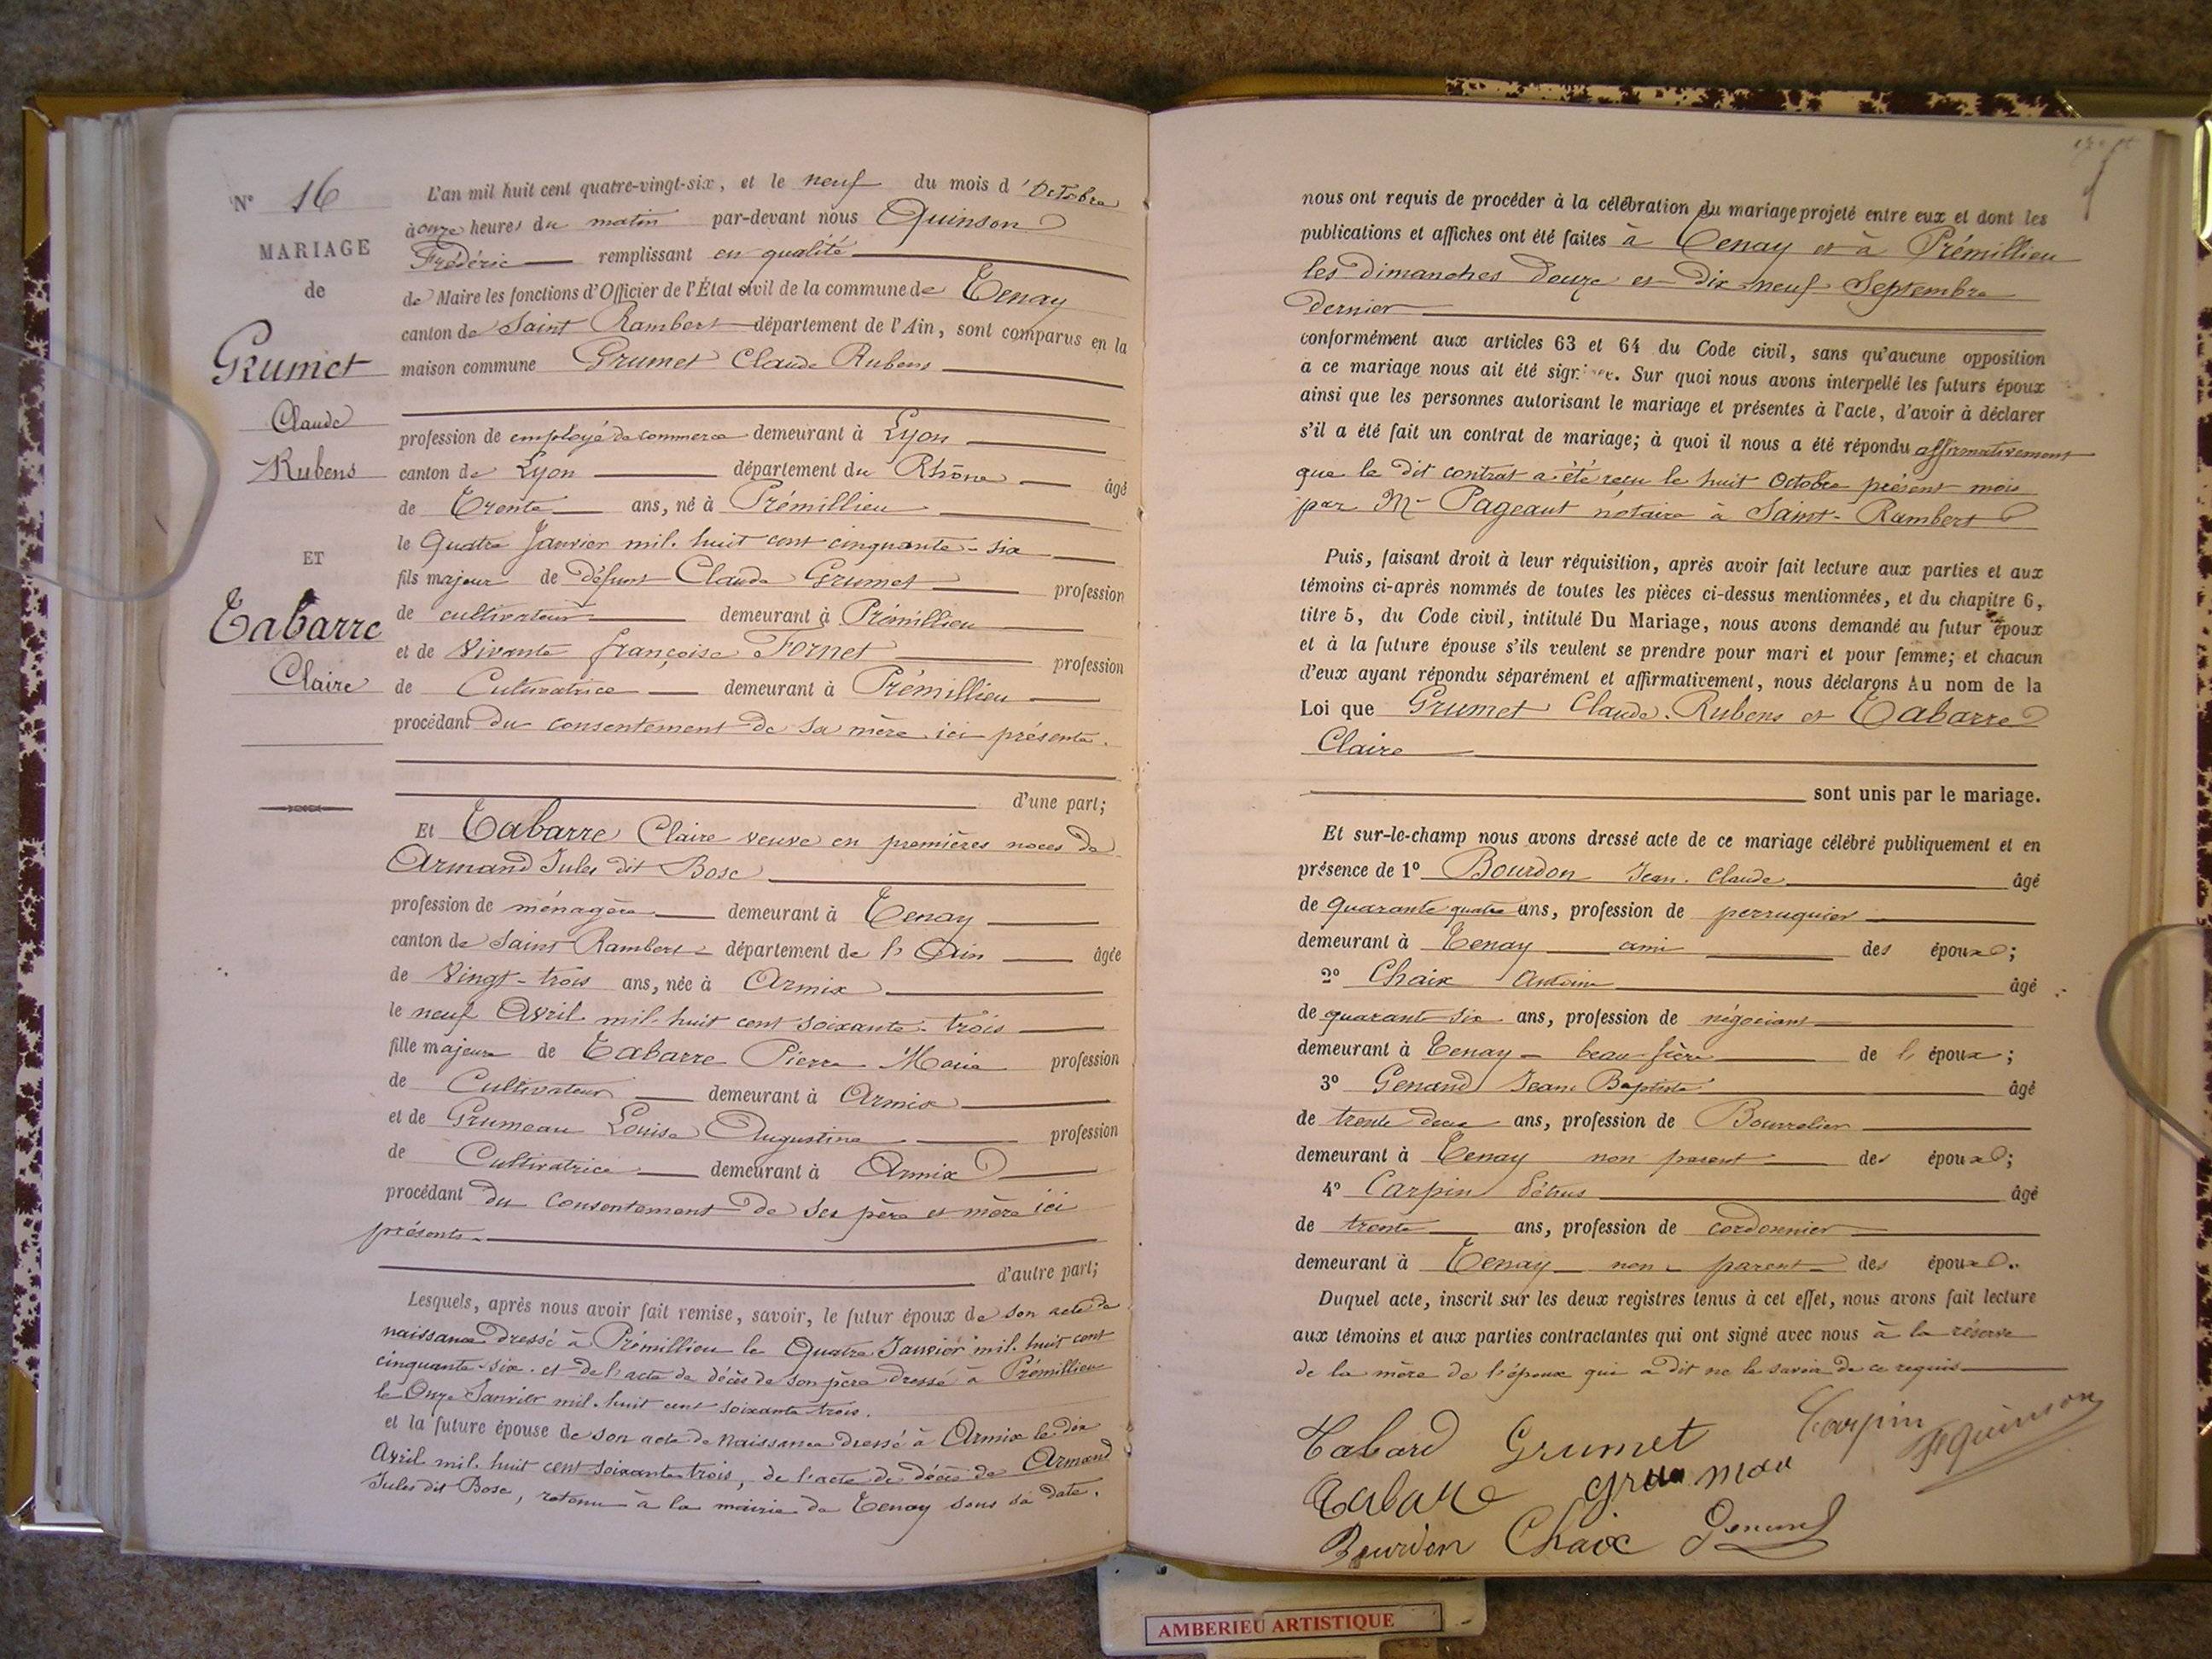 N° 16
MARIAGE
de
Grumet
Claude
Rubens
ET
Tabarre
Claire
L'an mil huit cent quatre-vingt-six, et le neuf du mois d'Octobre
à onze heures du matin par-devant nous Quinson
Frédéric remplissant en qualité
de Maire les fonctions d'Officier de l'État civil de la commune de Tenay
canton de Saint Rambert département de l'Ain, sont comparus en la
maison commune Grumet Claude Rubens
profession de employé de commerce demeurant à Lyon
canton de Lyon département du Rhône âgé
de Trente ans, né à Prémillieu
le Quatre Janvier mil huit cent cinquante-six
fils majeur de défunt Claude Grumet profession
de cultivateur demeurant à Prémillieu
et de vivante françoise Fornet profession
de Cultivatrice demeurant à Prémillieu
procédant du consentement de sa mère ici présente.
d'une part;
Et Tabarre Claire veuve en premières noces de
Armand Jules dit Bosc
profession de ménagère demeurant à Tenay
canton de Saint Rambert département de l'Ain âgée
de Vingt-trois ans, née à Armix
le neuf Avril mil huit cent soixante-trois
fille majeure de Tabarre Pierre Marie profession
de Cultivateur demeurant à Armix
et de Grumeau Louise Augustine profession
de Cultivatrice demeurant à Armix
procédant du consentement de ses père et mère ici
présents
d'autre part;
Lesquels, après nous avoir fait remise, savoir, le futur époux de son acte de
naissance dressé à Prémillieu le Quatre Janvier mil huit cent
cinquante-six. et de l'acte de décès de son père dressé à Prémillieu
le Onze Janvier mil huit cent soixante trois.
et la future épouse de son acte de Naissance dressé à Armix le dix
Avril mil huit cent soixante trois, de l'acte de décès de Armand
Jules dit Bosc, retenu à la mairie de Tenay sous sa date.
nous ont requis de procéder à la célébration du mariage projeté entre eux et dont les
publications et affiches ont été faites à Tenay et à Prémillieu
les Dimanches Douze et Dix neuf Septembre
Dernier
conformément aux articles 63 et 64 du Code civil, sans qu'aucune opposition
à ce mariage nous ait été signifiée. Sur quoi nous avons interpellé les futurs époux
ainsi que les personnes autorisant le mariage et présentes à l'acte, d'avoir à déclarer
s'il a été fait un contrat de mariage; à quoi il nous a été répondu affirmativement
que le dit contrat a été reçu le huit Octobre présent mois
par Me Pageaut notaire à Saint-Rambert
Puis, faisant droit à leur réquisition, après avoir fait lecture aux parties et aux
témoins ci-après nommés de toutes les pièces ci-dessus mentionnées, et du chapitre 6,
titre 5, du Code civil, intitulé Du Mariage, nous avons demandé au futur époux
et à la future épouse s'ils veulent se prendre pour mari et pour femme; et chacun
d'eux ayant répondu séparément et affirmativement, nous déclarons Au nom de la
Loi que Grumet Claude Rubens et Tabarre
Claire
sont unis par le mariage.
Et sur-le-champ nous avons dressé acte de ce mariage célébré publiquement et en
présence de 1° Bourdon Jean Claude âgé
de quarante quatre ans, profession de perruquier
demeurant à Tenay ami des époux;
2° Chaix Antoine âgé
de quarante six ans, profession de négociant
demeurant à Tenay beau-frère de l'époux;
3° Genand Jean Baptiste âgé
de trente deux ans, profession de Bourrelier
demeurant à Tenay non parent des époux;
4° Carpin Pétrus âgé
de trente ans, profession de cordonnier
demeurant à Tenay non parent des époux.
Duquel acte, inscrit sur les deux registres tenus à cet effet, nous avons fait lecture
aux témoins et aux parties contractantes qui ont signé avec nous à la réserve
de la mère de l'époux qui a dit ne le savoir de ce requis
Tabard Grumet Carpin FQuinson
Tabarre grumau
Bourdon Chaix Genand
AMBERIEU ARTISTIQUE